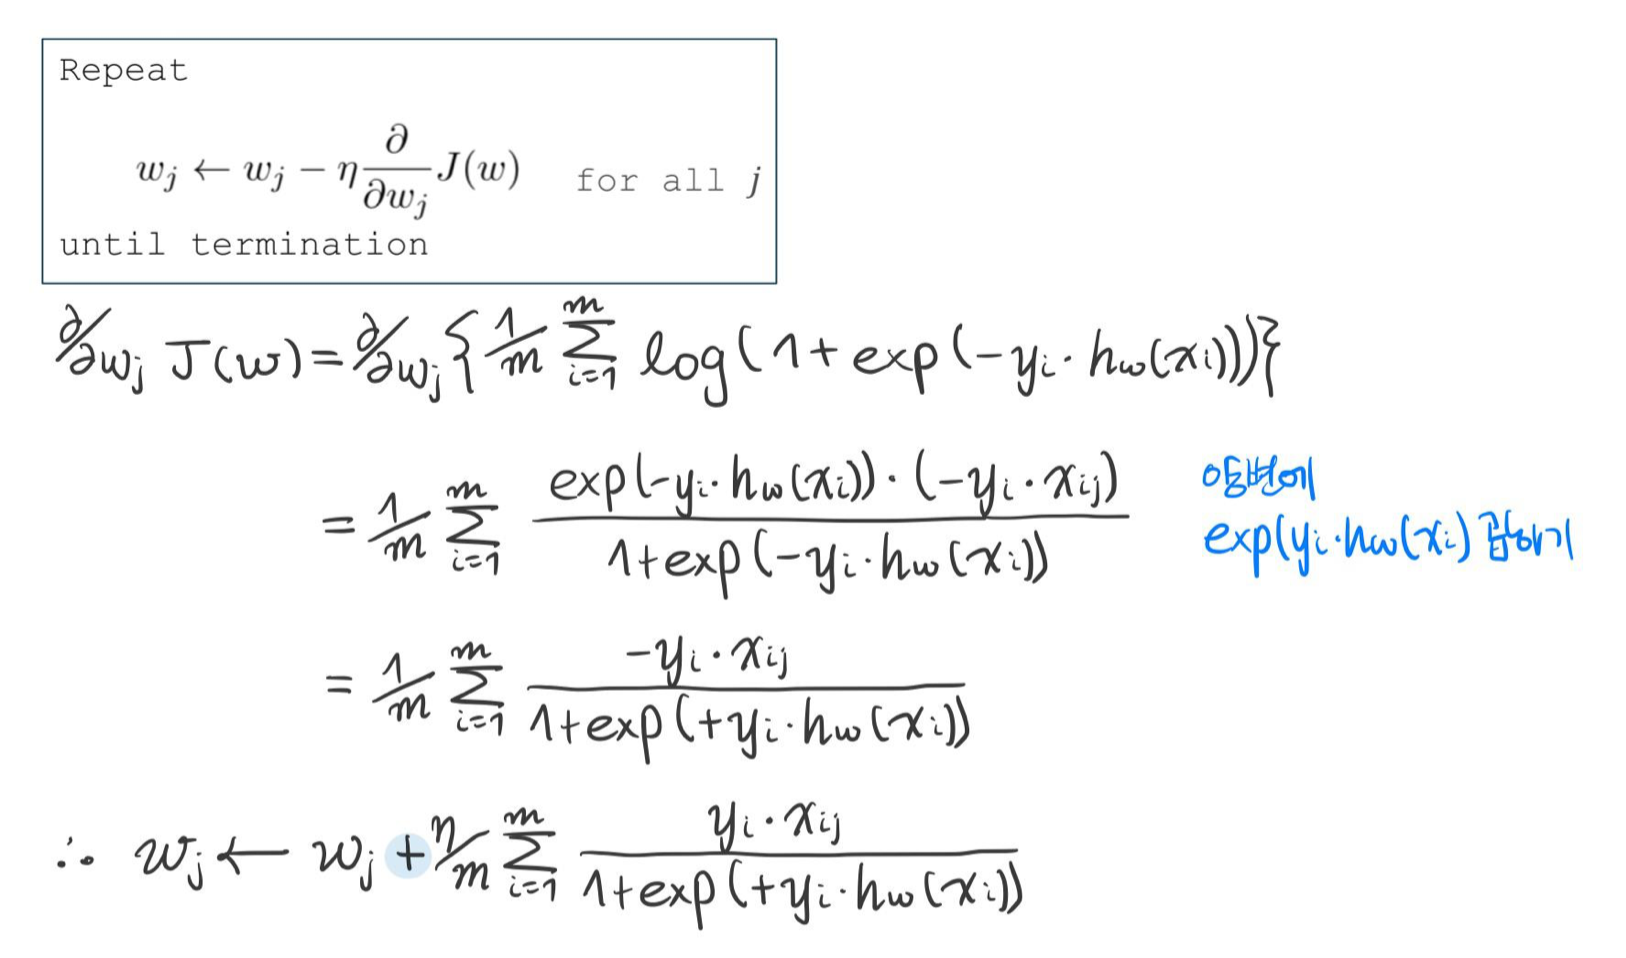 Repeat
w_j ← w_j − η ∂/∂w_j J(w) for all j
until termination
∂/∂w_j J(w) = ∂/∂w_j { 1/m Σ_{i=1}^{m} log(1+exp(-y_i·h_w(x_i))) }
= 1/m Σ_{i=1}^{m} exp(-y_i·h_w(x_i))·(-y_i·x_ij) / 1+exp(-y_i·h_w(x_i))
양변에
exp(y_i·h_w(x_i) 곱하기
= 1/m Σ_{i=1}^{m} -y_i·x_ij / 1+exp(+y_i·h_w(x_i))
∴ w_j ← w_j + η/m Σ_{i=1}^{m} y_i·x_ij / 1+exp(+y_i·h_w(x_i))